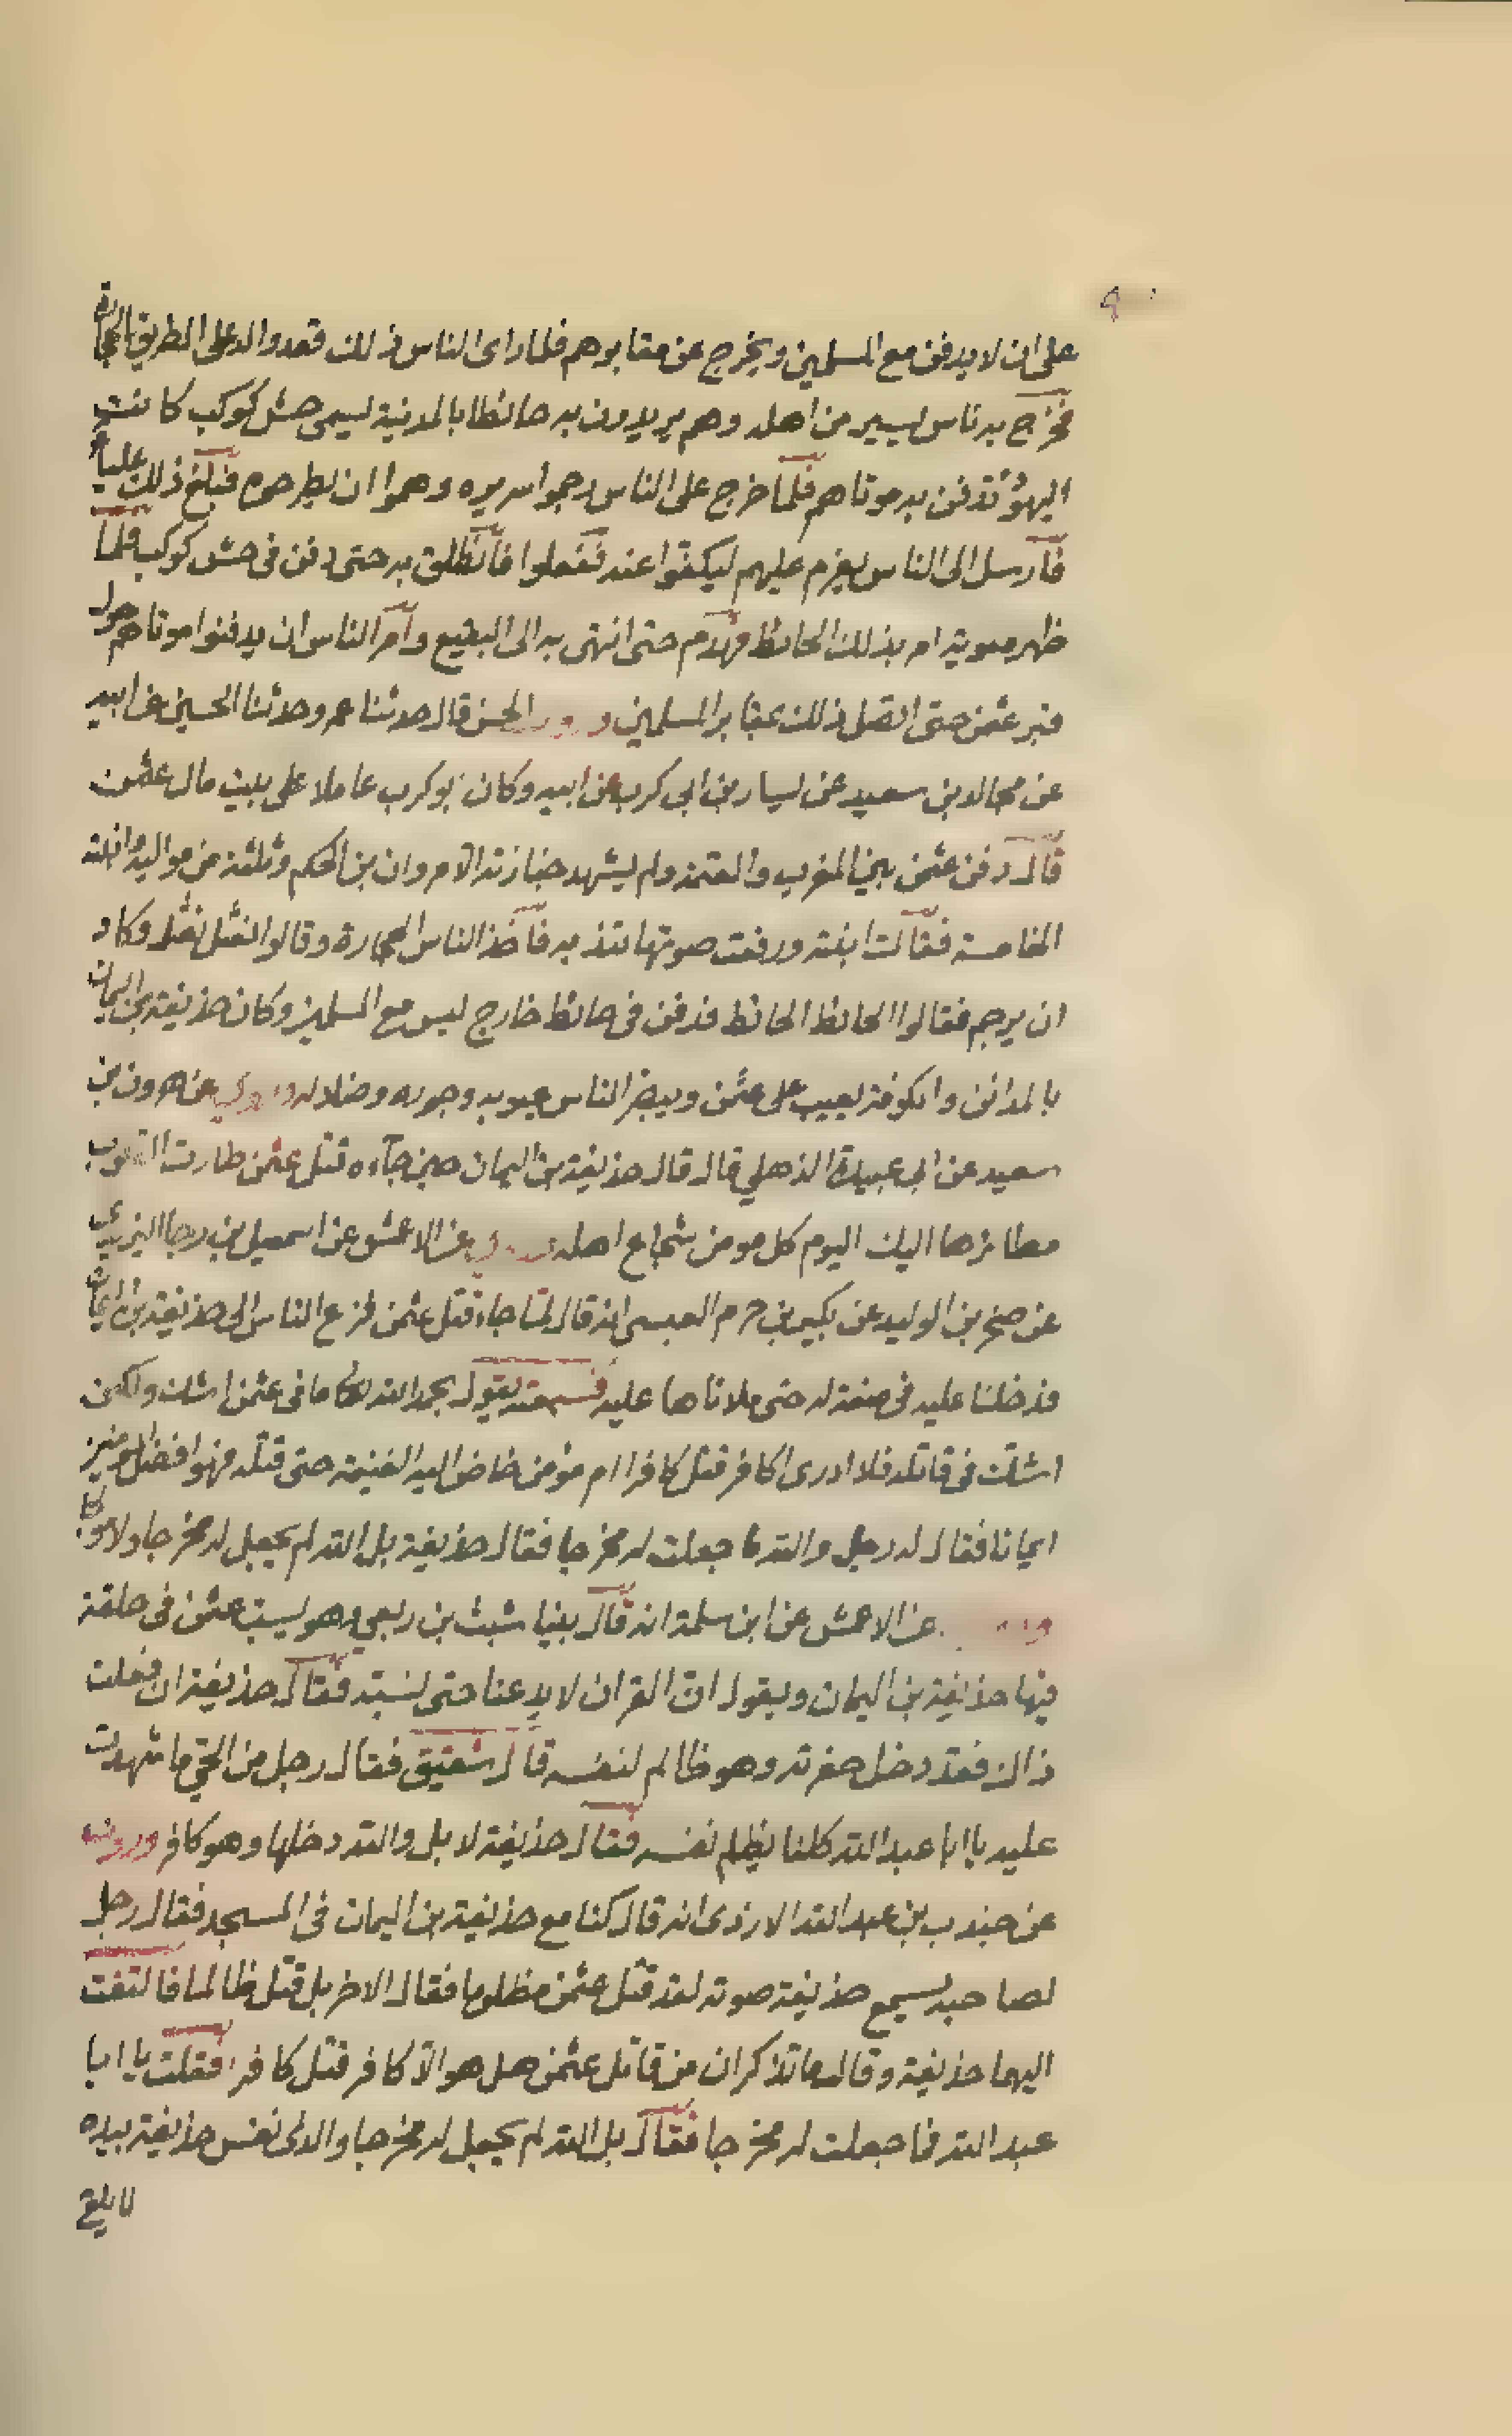 على ان لا يدفن مع المسلمين ويخرج عن مقابرهم فلما راى الناس ذلك قعدوا له على الطريق بالحجارة
فخرج به ناس يسير من اهله وهم يريدون به حائطا بالمدينة يسمى حش كوكب كانت
اليهود تدفن به موتاهم فلما خرج على الناس رجموا سريره وهموا ان يطرحوه فبلغ ذلك علياً
فارسل الى الناس يعزم عليهم ليكفوا عنه ففعلوا فانطلق به حتى دفن فى حش كوكب فلما
ظهر معوية امر بذلك الحائط فهدم حتى انتهى به الى البقيع وامر الناس ان يدفنوا موتاهم حول
قبر عثمن حتى اتصل ذلك بمقابر المسلمين الحسن قال حدثنا عمرو حدثنا الحسين عن ابيه
عن مجالد بن سعيد عن يسار بن ابى كرب عن ابيه وكان ابوكرب عاملا على بيت مال عثمن
قال دفن عثمن بين المغرب والعتمة ولم يشهد جنازته الا مروان بن الحكم وثلثة من مواليه وابنته
الخامسة فقالت ابنته ورفعت صوتها تندبه فاخذ الناس الحجارة وقالوا نعثل نعثل وكاد
ان يرجم فقالوا الحائط الحائط فدفن فى حائط خارج ليس مع المسلمين وكان حذيفة بن اليمان
بالمدائن والكوفة يعيب على عثمن ويبصر الناس عيوبه وجوره وضلاله عن هرون بن
سعيد عن ابى عبيدة الذهلي قال قال حذيفة بن اليمان حين جآءه قتل عثمن طارت القلوب
مطائرها اليك اليوم كل مومن شجاع اهله عن الاعمش عن اسمعيل بن رجا الزبيدي
عن صخر بن الوليد عن بكير بن حرم العبسى انه قال لمّا جاء قتل عثمن فزع الناس الى حذيفة بن اليمان
فدخلنا عليه فى صفة له حتى ملاناها عليه فسمعته يقول بحمد الله ما فى عثمن اشك ولكن
اشك فى قاتله فلا ادرى اكافر قتل كافرا ام مؤمن خاض اليه الفتنة حتى قتله فهو افضل المومنين
ايمانا فقال له رجل والله ما جعلت له مخرجا فقال حذيفة بل الله لم يجعل له مخرجا ولا
عن الاعمش عن ابن سلمة انه قال بينا شبث بن ربعي وهو يسب عثمن فى حلقة
فيها حذيفة بن اليمان ويقول ان القران لا يدعنا حتى نسبه فقال حذيفة ان فعلت
ذاك فقد دخل حفرته وهو ظالم لنفسه قال شقيق فقال رجل من الحي ما شهدت
عليه يا ابا عبد الله كلنا يظلم نفسه فقال حذيفة لا بل والله دخلها وهو كافر
عن جندب بن عبد الله الازدى انه قال كنا مع حذيفة بن اليمان فى المسجد فقال رجل
لصاحبه يسمع حذيفة صوته لقد قتل عثمن مظلوما فقال الاخر بل قتل ظالما فالتفت
اليهما حذيفة وقال ما تذكران من قاتل عثمن هل هو الا كافر قتل كافرا فقلت يا ابا
عبد الله فما جعلت له مخرجا فقال بل الله لم يجعل له مخرجا والذى نفس حذيفة بيده